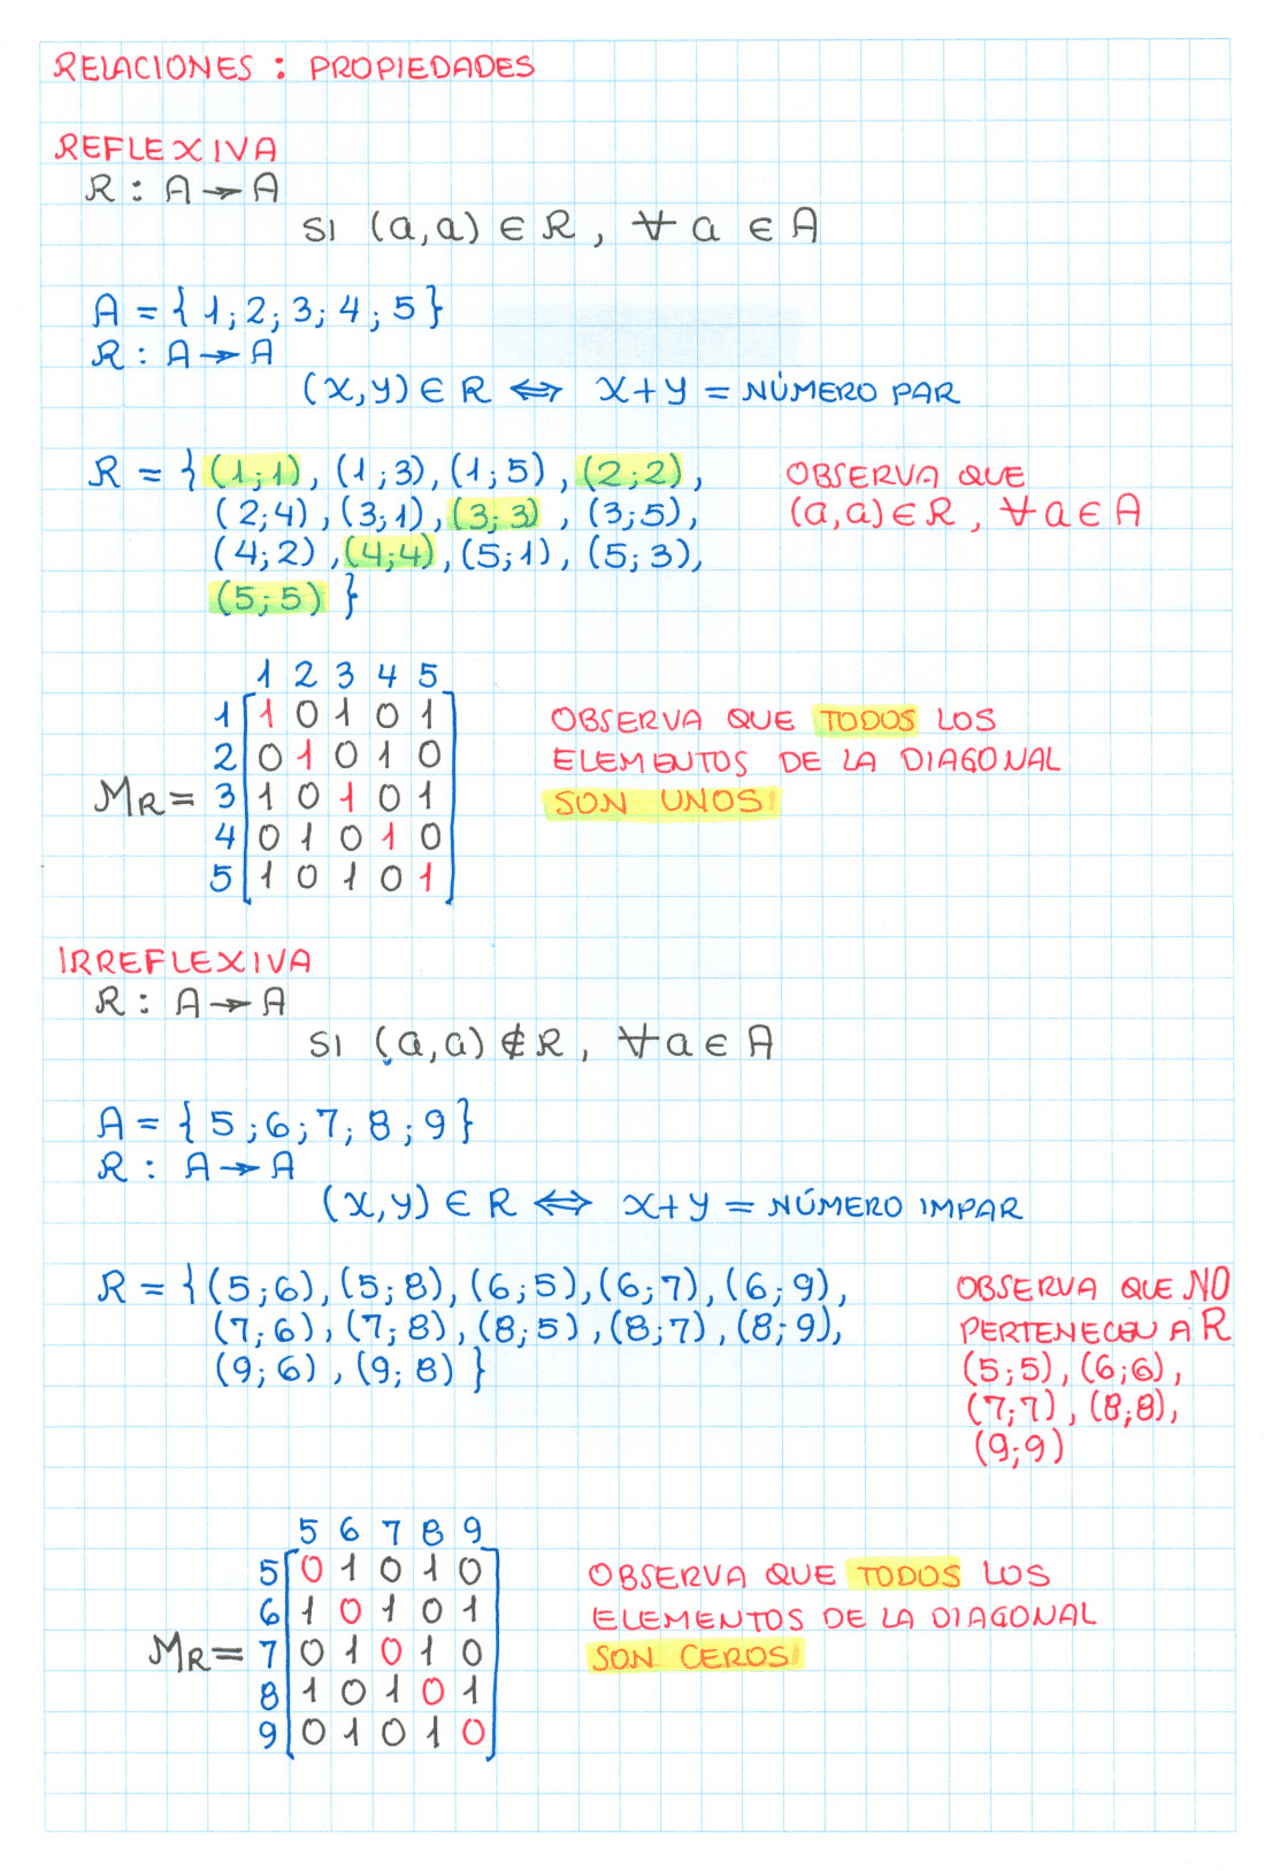 RELACIONES : PROPIEDADES
REFLEXIVA
R : A → A
SI (a,a) ∈ R , ∀ a ∈ A
A = { 1; 2; 3; 4; 5 }
R : A → A
(x,y) ∈ R ⇔ x+y = NÚMERO PAR
R = { (1;1), (1;3), (1;5), (2;2),
(2;4), (3;1), (3;3), (3;5),
(4;2), (4;4), (5;1), (5;3),
(5;5) }
OBSERVA QUE
(a,a) ∈ R, ∀ a ∈ A
1 2 3 4 5
1 1 0 1 0 1
2 0 1 0 1 0
MR = 3 1 0 1 0 1
4 0 1 0 1 0
5 1 0 1 0 1
OBSERVA QUE TODOS LOS
ELEMENTOS DE LA DIAGONAL
SON UNOS!
IRREFLEXIVA
R : A → A
SI (a,a) ∉ R , ∀ a ∈ A
A = { 5; 6; 7; 8; 9 }
R : A → A
(x,y) ∈ R ⇔ x+y = NÚMERO IMPAR
R = { (5;6), (5;8), (6;5), (6;7), (6;9),
(7;6), (7;8), (8;5), (8;7), (8;9),
(9;6), (9;8) }
OBSERVA QUE NO
PERTENECEN A R
(5;5), (6;6),
(7;7), (8;8),
(9;9)
5 6 7 8 9
5 0 1 0 1 0
6 1 0 1 0 1
MR = 7 0 1 0 1 0
8 1 0 1 0 1
9 0 1 0 1 0
OBSERVA QUE TODOS LOS
ELEMENTOS DE LA DIAGONAL
SON CEROS!